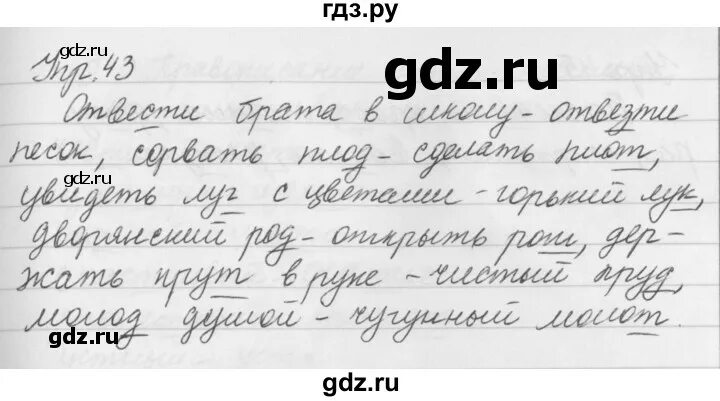 гдз.ру
Упр. 43
gdz.ru gdz.ru gdz.ru
Отвести брата в школу - отвезти
песок, сорвать плод - сделать плот,
gdz.ru gdz.ru
увидеть луг с цветами - горький лук,
дворянский род - открыть рот, дер-
gdz.ru gdz.ru gdz.ru
жать прут в руке - чистый пруд,
молод душой - чугунный молот.
gdz.ru gdz.ru
gdz.ru